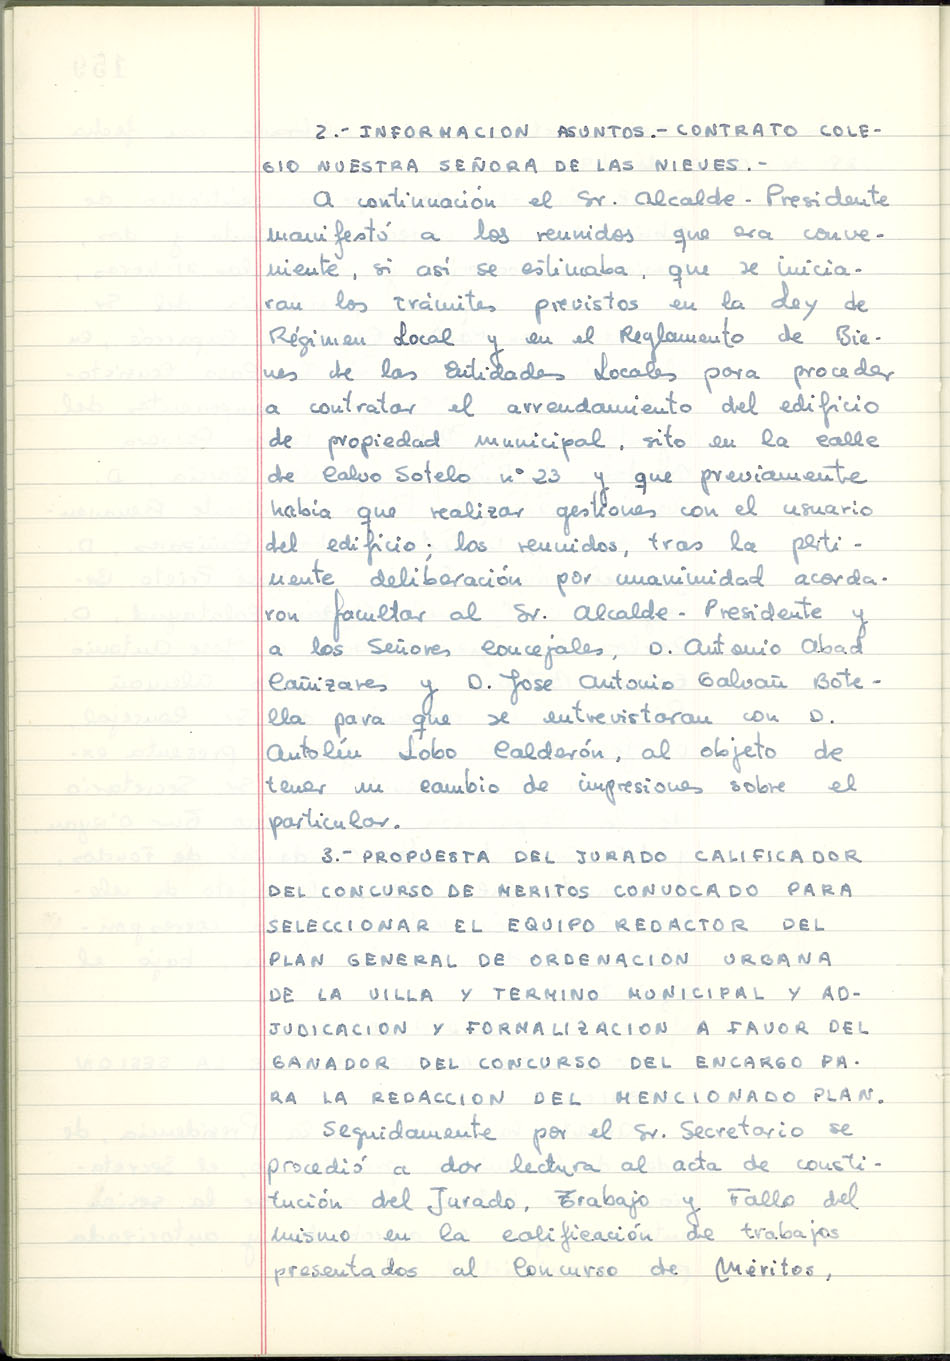 2.- INFORMACION ASUNTOS.- CONTRATO COLE-
GIO NUESTRA SEÑORA DE LAS NIEVES.-
A continuación el Sr. Alcalde - Presidente
manifestó a los reunidos que era conve-
niente, si así se estimaba, que se inicia-
ran los trámites previstos en la Ley de
Régimen Local y en el Reglamento de Bie-
nes de las Entidades Locales para proceder
a contratar el arrendamiento del edificio
de propiedad municipal, sito en la calle
de Calvo Sotelo nº 23 y que previamente
habia que realizar gestiones con el usuario
del edificio; los reunidos, tras la perti-
nente deliberación por unanimidad acorda-
ron facultar al Sr. Alcalde - Presidente y
a los Señores Concejales, D. Antonio Abad
Cañizares y D. Jose Antonio Galvañ Bote-
lla para que se entrevistaran con D.
Antolín Lobo Calderón, al objeto de
tener un cambio de impresiones sobre el
particular.
3.- PROPUESTA DEL JURADO CALIFICADOR
DEL CONCURSO DE MERITOS CONVOCADO PARA
SELECCIONAR EL EQUIPO REDACTOR DEL
PLAN GENERAL DE ORDENACION URBANA
DE LA VILLA Y TERMINO MUNICIPAL Y AD-
JUDICACION Y FORMALIZACION A FAVOR DEL
GANADOR DEL CONCURSO DEL ENCARGO PA-
RA LA REDACCION DEL MENCIONADO PLAN.
Seguidamente por el Sr. Secretario se
procedió a dar lectura al acta de consti-
tución del Jurado, Trabajo y Fallo del
mismo en la calificación de trabajos
presentados al Concurso de Méritos,